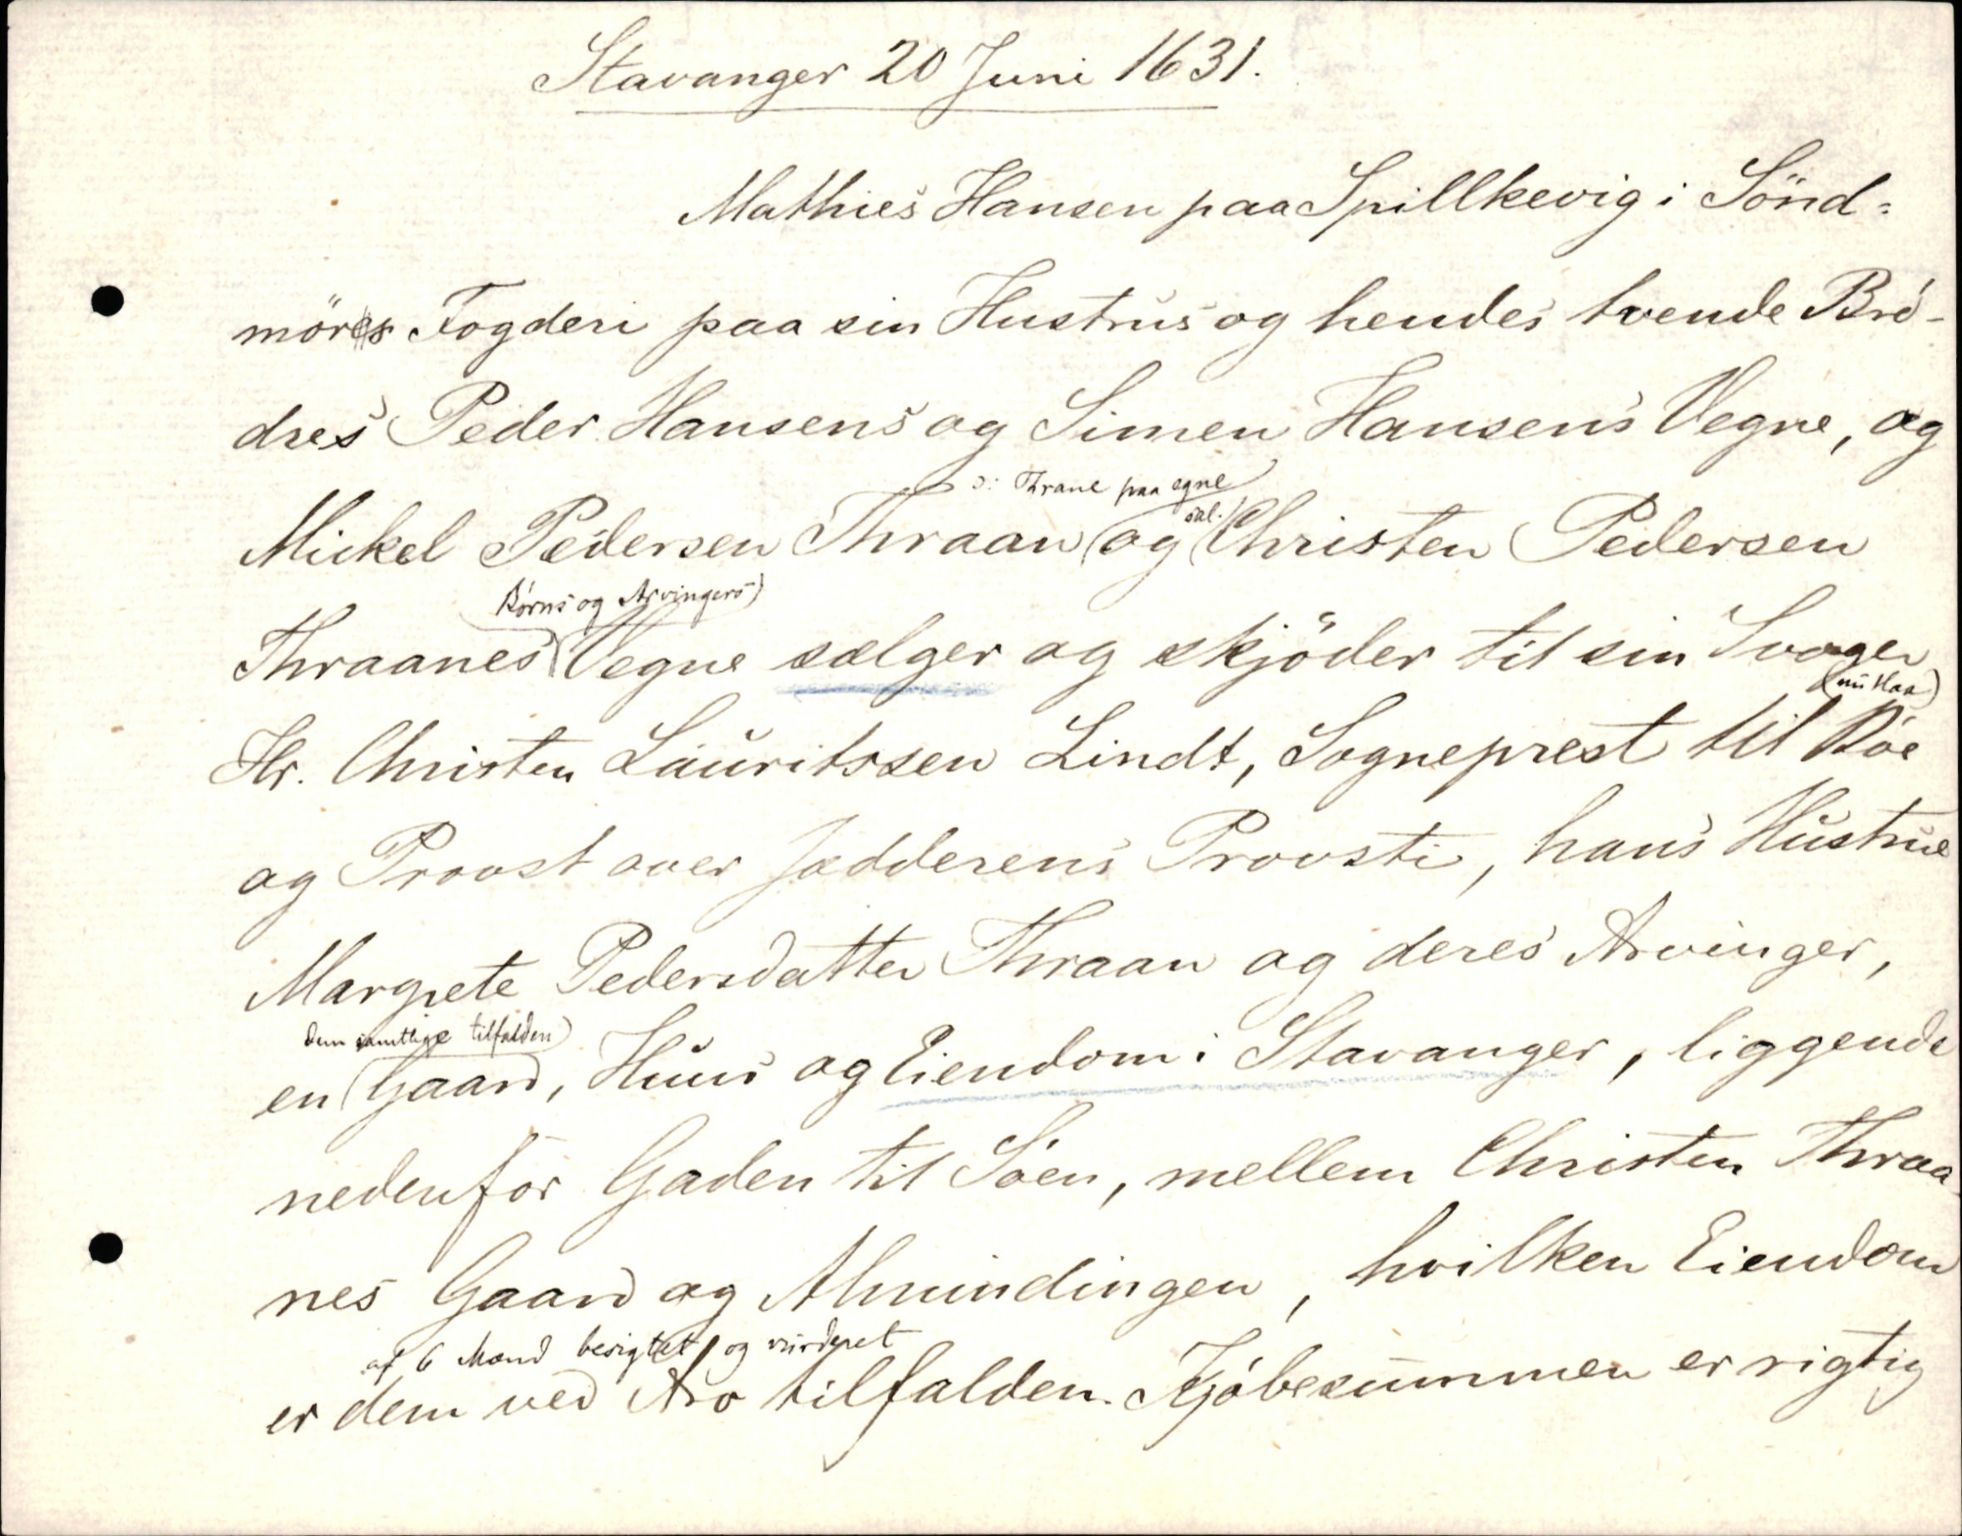 Stavanger 20 Juni 1631.
Mathies Hansen paa Spillkevig i Sönd=
mörs Fogderi paa sin Hustrus og hendes tvende Brö-
dres Peder Hansens og Simen Hansens Vegne, og
ɔ: Thrane paa egne
sal.
Mickel Pedersen Thraan (og (Christen Pedersen
Börns og Arvingers)
Thraanes) Vegne sælger og skjöder til sin Svoger
(nu Haa)
Hr. Christen Lauritssen Lindt, Sogneprest til Böe
og Provst over Jædderens Provsti, hans Hustrue
Margrete Pedersdatter Thraan og deres Arvinger,
dem samtlige tilfalden)
en (Gaard, Huus og Eiendom i Stavanger, liggende
nedenfor Gaden til Söen, mellem Christen Thraa-
nes Gaard og Almindingen, hvilken Eiendom
af 6 Mænd besigtet og vurderet
er dem ved Arv tilfalden. Kjöbesummen er rigtig